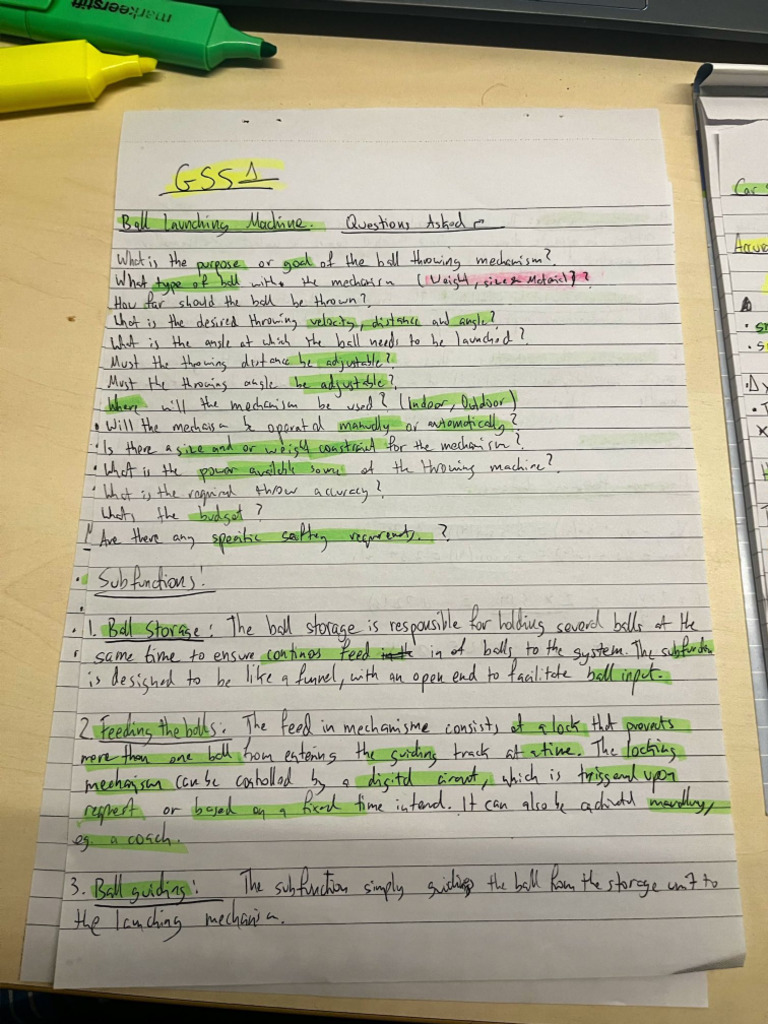 markeerstift
GSS1
Ball Launching Machine. Questions Asked
What is the purpose or goal of the ball throwing mechanism?
What type of ball with the mechanism (Weight, size & Material)?
How far should the ball be thrown?
What is the desired throwing velocity, distance and angle?
What is the angle at which the ball needs to be launched?
Must the throwing distance be adjustable?
Must the throwing angle be adjustable?
Where will the mechanism be used? (Indoor, Outdoor)
• Will the mechanism be operated manually or automatically?
• Is there a size and or weight constraint for the mechanism?
• What is the power available source of the throwing machine?
• What is the required throw accuracy?
Whats the budget?
Are there any specific safety requirements. ?
• Subfunctions:
1. Ball Storage: The ball storage is responsible for holding several balls at the
same time to ensure continos feed in of balls to the system. The subfunction
is designed to be like a funnel, with an open end to facilitate ball input.
2 Feeding the balls: The feed in mechanisme consists of a lock that prevents
more than one ball from entering the guiding track at a time. The locking
mechanism can be controlled by a digital circuit, which is triggered upon
request or based on a fixed time interval. It can also be activated manually,
eg. a coach.
3. Ball guiding: The subfunction simply guiding the ball from the storage unit to
the launching mechanism.
Car